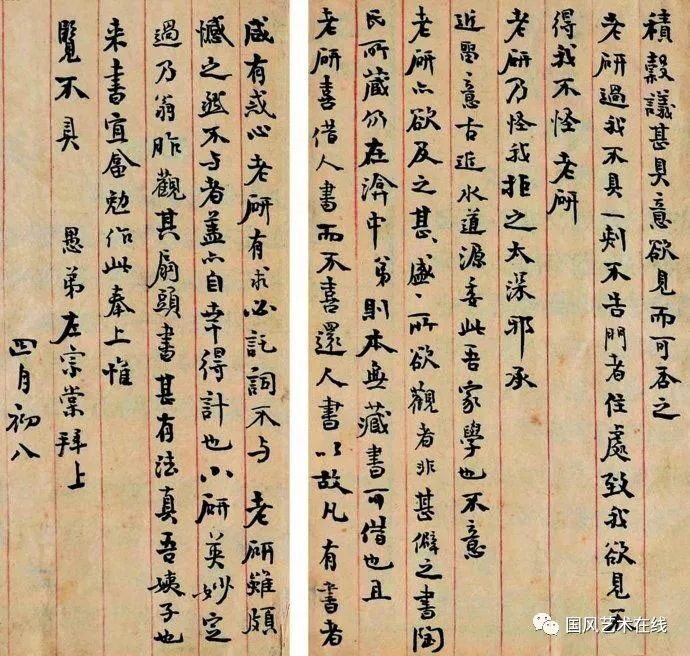 積穀議甚具意欲見而可否之
老研過我不具一剌不告門者住處致我欲見不
得我不怪老研
老研乃怪我拒之太深邪承
近留意古近水道源委此吾家學也不意
老研亦欲及之甚盛甚盛所欲觀者非甚僻之書陶
民所藏仍在渰中弟則本無藏書可借也且
老研喜借人書而不喜還人書以故凡有書者
咸有惑心老研有求必託詞不与老研雖頗
憾之然不与者蓋亦自幸得計也小研英妙定
過乃翁昨觀其扇頭書甚有法真吾姨子也
来書宜畲勉作此奉上惟
覽不具 愚弟左宗棠拜上
四月初八
国风艺术在线